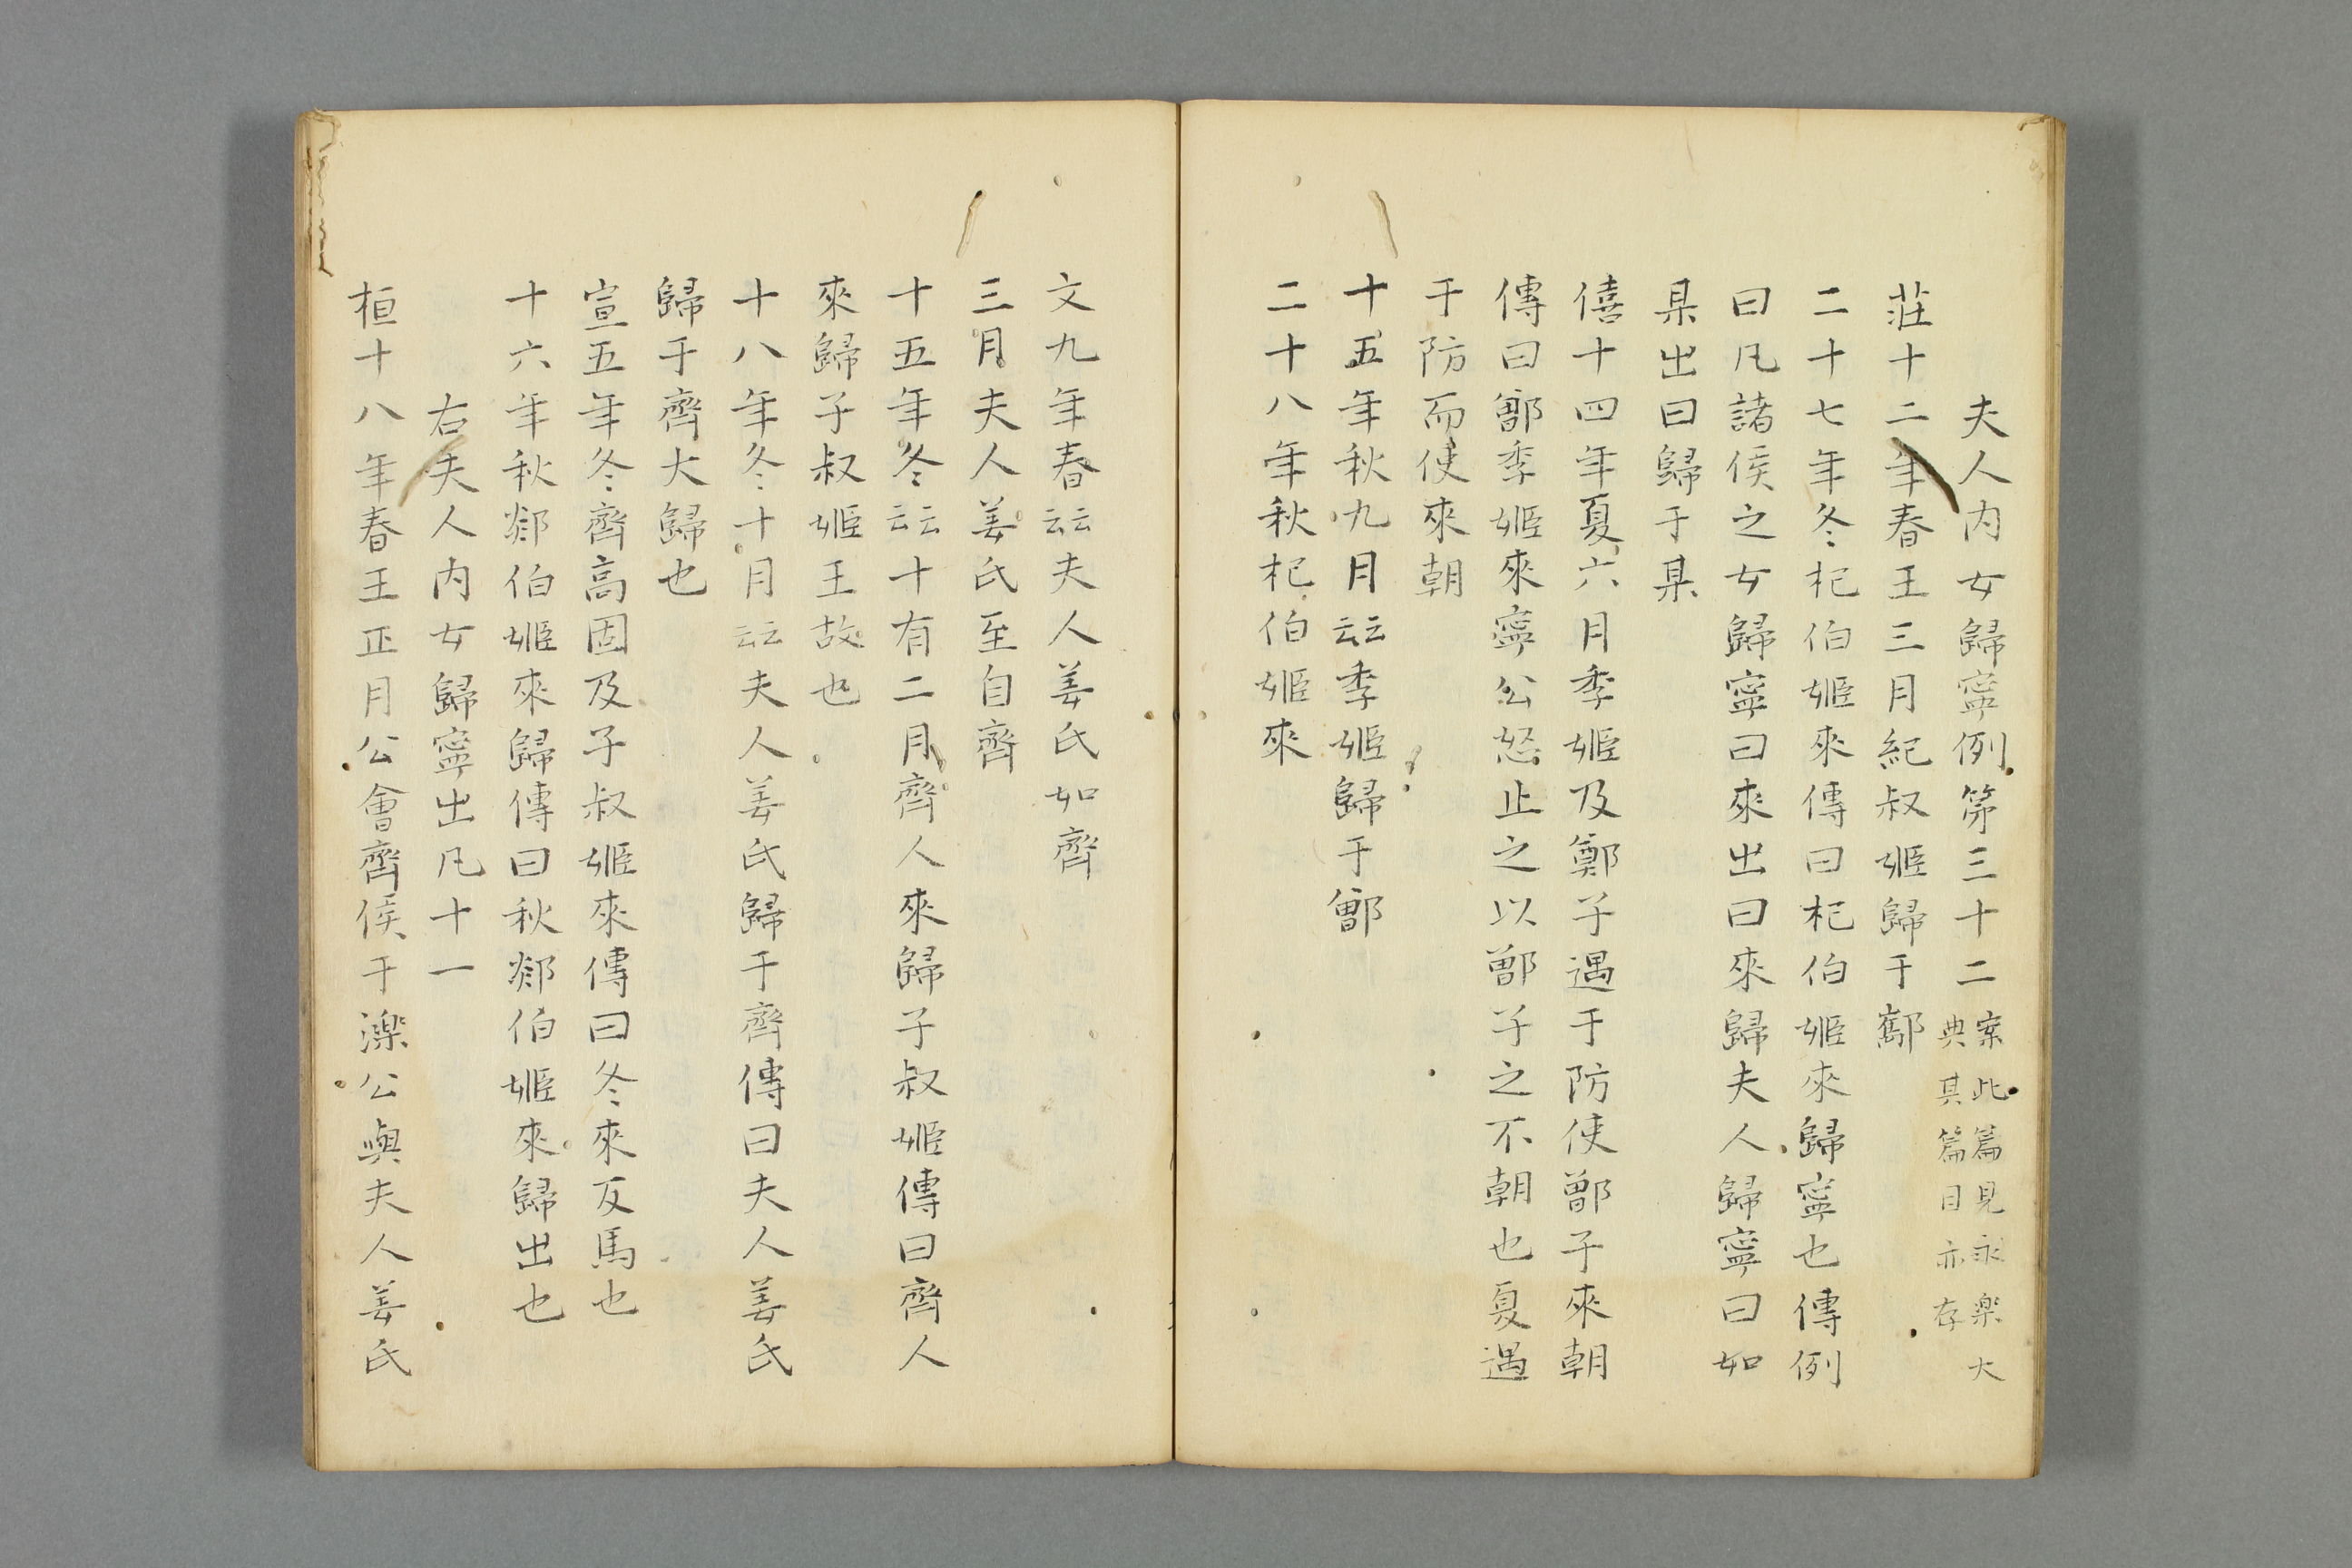 夫人内女歸寧例第三十二案此篇見永樂大
典其篇目亦存
莊十二年春王三月紀叔姬歸于酅
二十七年冬杞伯姬來傳曰杞伯姬來歸寧也傳例
曰凡諸侯之女歸寧曰來出曰來歸夫人歸寧曰如
某出曰歸于某
僖十四年夏六月季姬及鄭子遇于防使鄫子來朝
傳曰鄫季姬來寧公怒止之以鄫子之不朝也夏遇
于防而使來朝
十五年秋九月云云季姬歸于鄫
二十八年秋杞伯姬來
文九年春云云夫人姜氏如齊
三月夫人姜氏至自齊
十五年冬云云十有二月齊人來歸子叔姬傳曰齊人
來歸子叔姬王故也
十八年冬十月云云夫人姜氏歸于齊傳曰夫人姜氏
歸于齊大歸也
宣五年冬齊高固及子叔姬來傳曰冬來反馬也
十六年秋郯伯姬來歸傳曰秋郯伯姬來歸出也
右夫人内女歸寧出凡十一
桓十八年春王正月公會齊侯于濼公與夫人姜氏